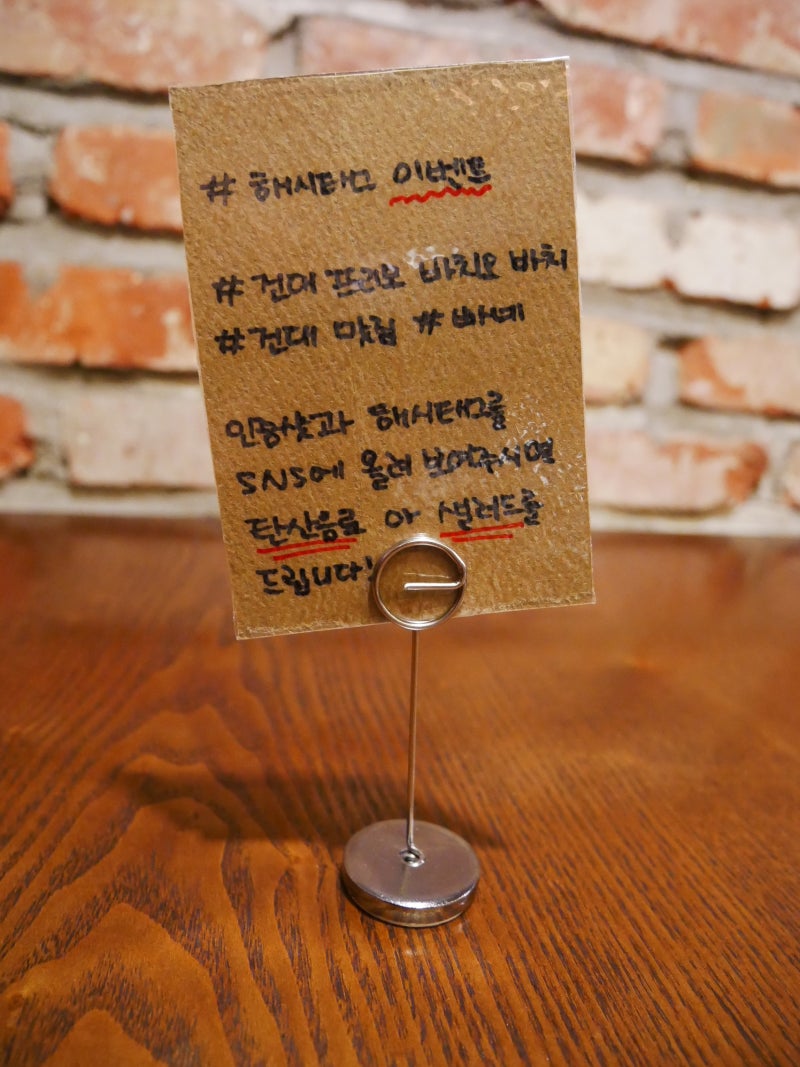 # 해시태그 이벤트
# 건대 프리모 바치오 바치
# 건대 맛집 # 빠네
인증샷과 해시태그를
SNS에 올려 보여주시면
탄산음료 or 샐러드를
드립니다!